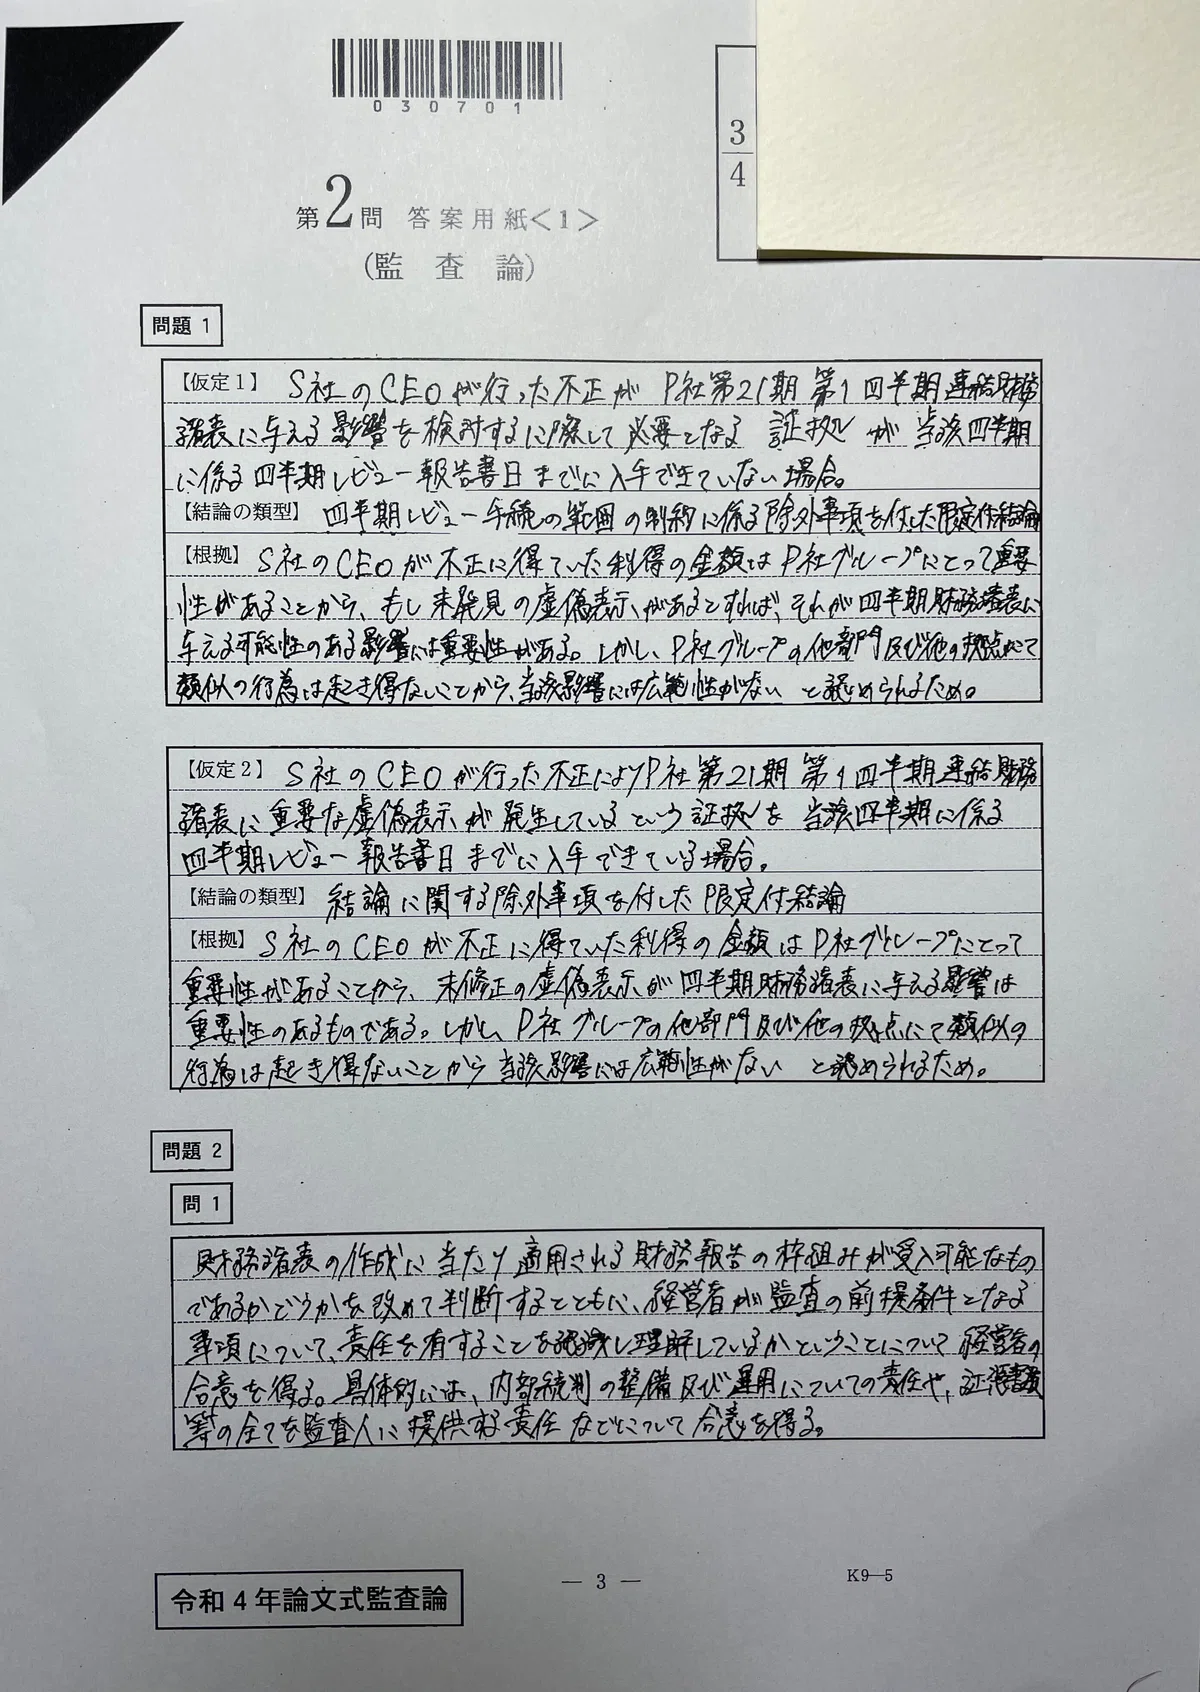 030701
3
4
第2問 答案用紙<1>
(監 査 論)
問題 1
【仮定1】 S社のCEOが行った不正が P社第21期 第1四半期連結財務
諸表に与える影響を検討するに際して必要となる 証拠が 当該四半期
に係る四半期レビュー報告書日までに入手できていない場合。
【結論の類型】 四半期レビュー手続の範囲の制約に係る除外事項を付した限定付結論
【根拠】 S社のCEOが不正に得ていた利得の金額はP社グループにとって重要
性があることから、もし未発見の虚偽表示があるとすれば、それが四半期財務諸表に
与える可能性のある影響には重要性がある。しかし、P社グループの他部門及び他の拠点にて
類似の行為は起き得ないことから、当該影響には広範性がない と認められるため。
【仮定2】 S社のCEOが行った不正によりP社第21期 第1四半期連結財務
諸表に重要な虚偽表示が発生しているという証拠を 当該四半期に係る
四半期レビュー報告書日までに入手できている場合。
【結論の類型】 結論に関する除外事項を付した限定付結論
【根拠】 S社のCEOが不正に得ていた利得の金額はP社グループにとって
重要性があることから、未修正の虚偽表示が四半期財務諸表に与える影響は
重要性のあるものである。しかし、P社グループの他部門及び他の拠点にて類似の
行為は起き得ないことから当該影響には広範性がない と認められるため。
問題 2
問 1
財務諸表の作成に当たり適用される財務報告の枠組みが受入可能なもの
であるかどうかを改めて判断するとともに、経営者が監査の前提条件となる
事項について、責任を有することを認識し理解しているかということについて経営者の
合意を得る。具体的には、内部統制の整備及び運用についての責任や、証憑書類
等の全てを監査人に提供する責任などについて合意を得る。
令和4年論文式監査論
— 3 —
K9—5